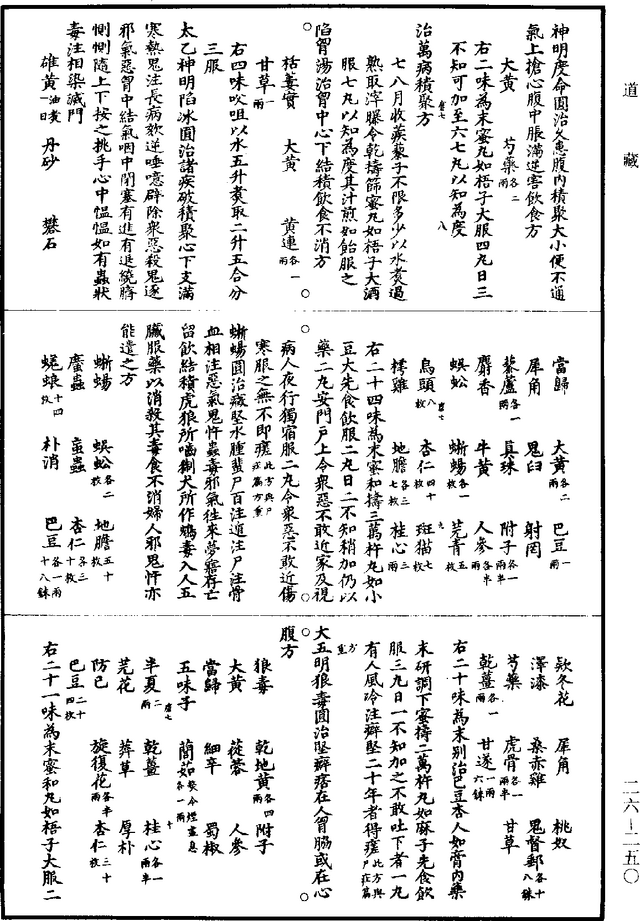 道藏
神明度命圓治久患腹內積聚大小便不通
氣上搶心腹中脹滿逆害飲食方
大黃 芍藥各二兩
右二味為末蜜丸如梧子大服四丸日三
不知可加至六七丸以知為度
治萬病積聚方
唐七 八
七八月收蒺藜子不限多少以水煮過
熟取滓曝令乾擣篩蜜丸如梧子大酒
服七丸以知為度其汁煎如飴服之
陷胷湯治胷中心下結積飲食不消方
栝蔞實 大黃 黃連各一兩
甘草一兩
右四味㕮咀以水五升煮取二升五合分
三服
太乙神明陷冰圓治諸疾破積聚心下支滿
寒熱鬼注長病欬逆唾噫辟除衆惡殺鬼逐
邪氣惡胷中結氣咽中閉塞有進有退繞臍
惻惻隨上下按之挑手心中愠愠如有蟲狀
毒注相染滅門
雄黃油煮一日 丹砂 礬石
當歸 大黃各二兩 巴豆一兩
犀角 鬼臼 射罔
藜蘆各一兩 真珠 附子各一兩半
麝香 牛黃 人參各半兩
蜈蚣 蜥蜴各一枚 芫青五枚
烏頭八枚 杏仁四十枚 斑猫七枚
唐七 九
樗雞 地膽各七枚 桂心三兩
右二十四味為末蜜和擣三萬杵丸如小
豆大先食飲服二丸日二不知稍加仍以
藥二丸安門戶上令衆惡不敢近家及視
病人夜行獨宿服二丸令衆惡不敢近傷
寒服之無不即瘥此方與尸疰篇方重
蜥蜴圓治癥堅水腫蜚尸百注遁注尸注骨
血相注惡氣鬼忤蟲毒邪氣往來夢寤存亡
留飲結積虎狼所嚙猘犬所作鴆毒入人五
臟服藥以消殺其毒食不消婦人邪鬼忤亦
能遣之方
蜥蜴 蜈蚣各二枚 地膽五十枚
䗪蟲 蝱蟲 杏仁各三十枚
蜣蜋十四枚 朴消各一兩 巴豆十八銖
欵冬花 犀角 桃奴
澤漆 桑赤雞 鬼督郵各十八銖
芍藥 虎骨各一兩半 甘草
乾薑各一兩 甘遂一兩六銖
右二十味為末別治巴豆杏人如膏內藥
末研調下蜜擣二萬杵丸如麻子先食飲
服三丸日一不知加之不敢吐下者一丸
有人風冷注癖堅二十年者得瘥此方與尸疰篇方重
大五明狼毒圓治堅癖痞在人胷脇或在心
腹方
狼毒 乾地黃各四兩 附子
大黃 蓯蓉 人參
當歸
細辛 蜀椒
五味子
唐七 十
䕡茹熬令煙盡息各一兩
半夏二兩 乾薑 桂心各一兩半
芫花 莽草 厚朴
防己 旋復花各半兩 杏仁三十枚
巴豆二十四枚
右二十一味為末蜜和丸如梧子大服二
二六—二五〇